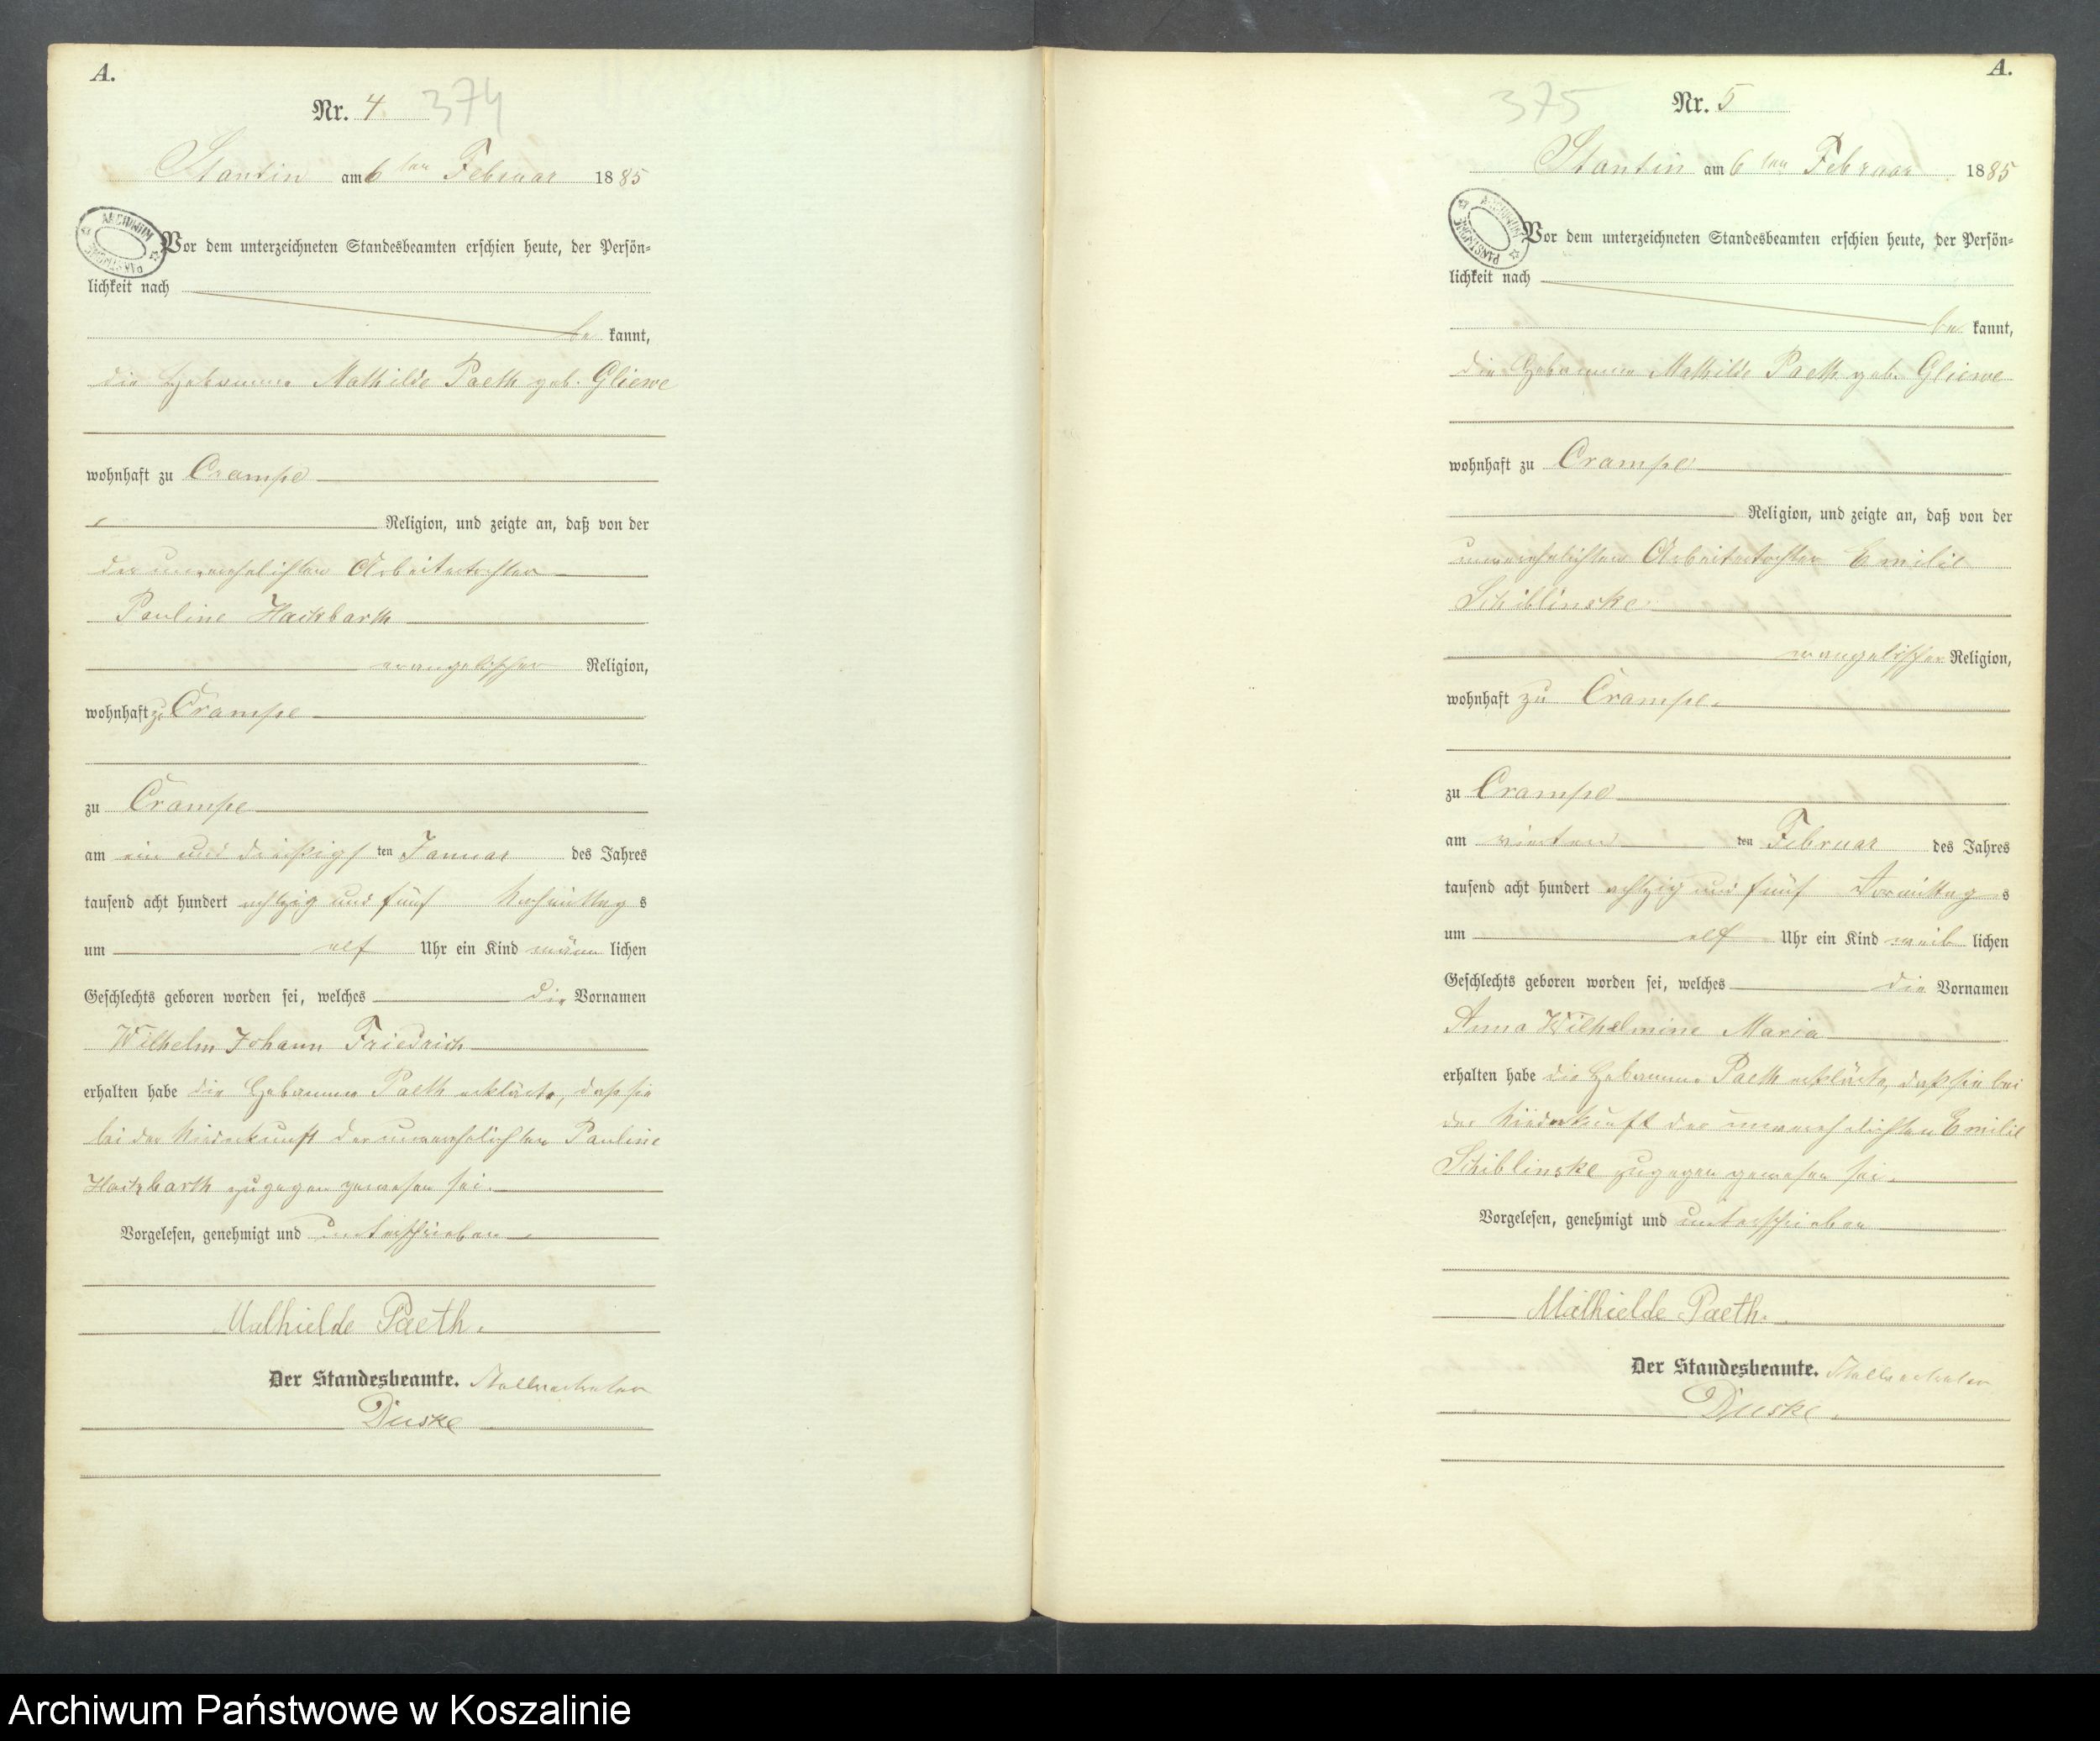 A.
Nr. 4 374
Stantin am 6ten Februar 1885
ARCHIWUM PAŃSTWOWE
Vor dem unterzeichneten Standesbeamten erschien heute, der Persön-
lichkeit nach
be kannt,
die Hebamme Mathilde Paeth geb. Gliewe
wohnhaft zu Crampe
Religion, und zeigte an, daß von der
der unverehelichten Arbeitertochter
Pauline Hackbarth
evangelischer Religion,
wohnhaft zu Crampe
zu Crampe
am ein und dreißigsten Januar des Jahres
tausend acht hundert achtzig und fünf Nachmittags
um elf Uhr ein Kind männlichen
Geschlechts geboren worden sei, welches die Vornamen
Wilhelm Johann Friedrich
erhalten habe die Hebamme Paeth erklärte, daß sie
bei der Niederkunft der unverehelichten Pauline
Hackbarth zugegen gewesen sei.
Vorgelesen, genehmigt und unterschrieben
Mathielde Paeth.
Der Standesbeamte. Stellvertreter
Diuske
A.
375 Nr. 5
Stantin am 6ten Februar 1885
ARCHIWUM PAŃSTWOWE
Vor dem unterzeichneten Standesbeamten erschien heute, der Persön-
lichkeit nach
be kannt,
die Hebamme Mathilde Paeth geb. Gliewe
wohnhaft zu Crampe
Religion, und zeigte an, daß von der
unverehelichten Arbeitertochter Emilie
Schiblinske
evangelischer Religion,
wohnhaft zu Crampe.
zu Crampe
am vierten ten Februar des Jahres
tausend acht hundert achtzig und fünf Vormittags
um elf Uhr ein Kind weiblichen
Geschlechts geboren worden sei, welches die Vornamen
Anna Wilhelmine Maria
erhalten habe die Hebamme Paeth erklärte, daß sie bei
der Niederkunft der unverehelichten Emilie
Schiblinske zugegen gewesen sei.
Vorgelesen, genehmigt und unterschrieben
Mathielde Paeth.
Der Standesbeamte. Stellvertreter
Diuske.
Archiwum Państwowe w Koszalinie